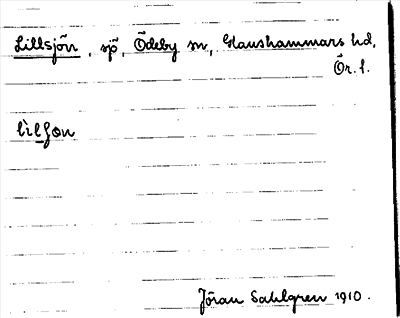 Lillsjön, sjö, Ödeby sn, Glanshammars hd,
Ör. l.
lìlʃøn
Jöran Sahlgren 1910.